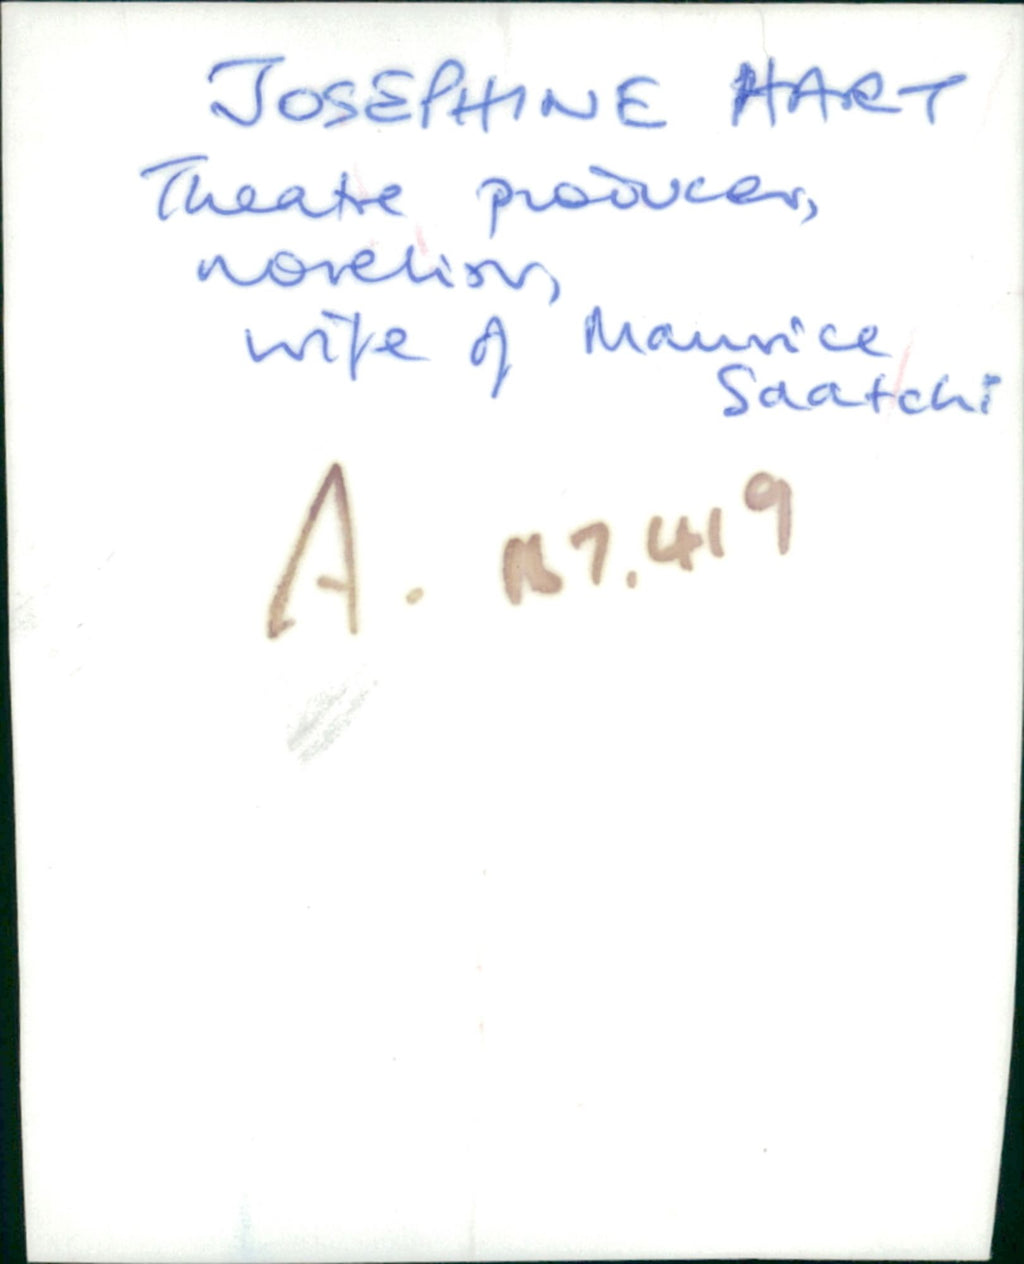 JOSEPHINE HART
Theatre producer,
novelist,
wife of Maurice
Saatchi
A. 7.419